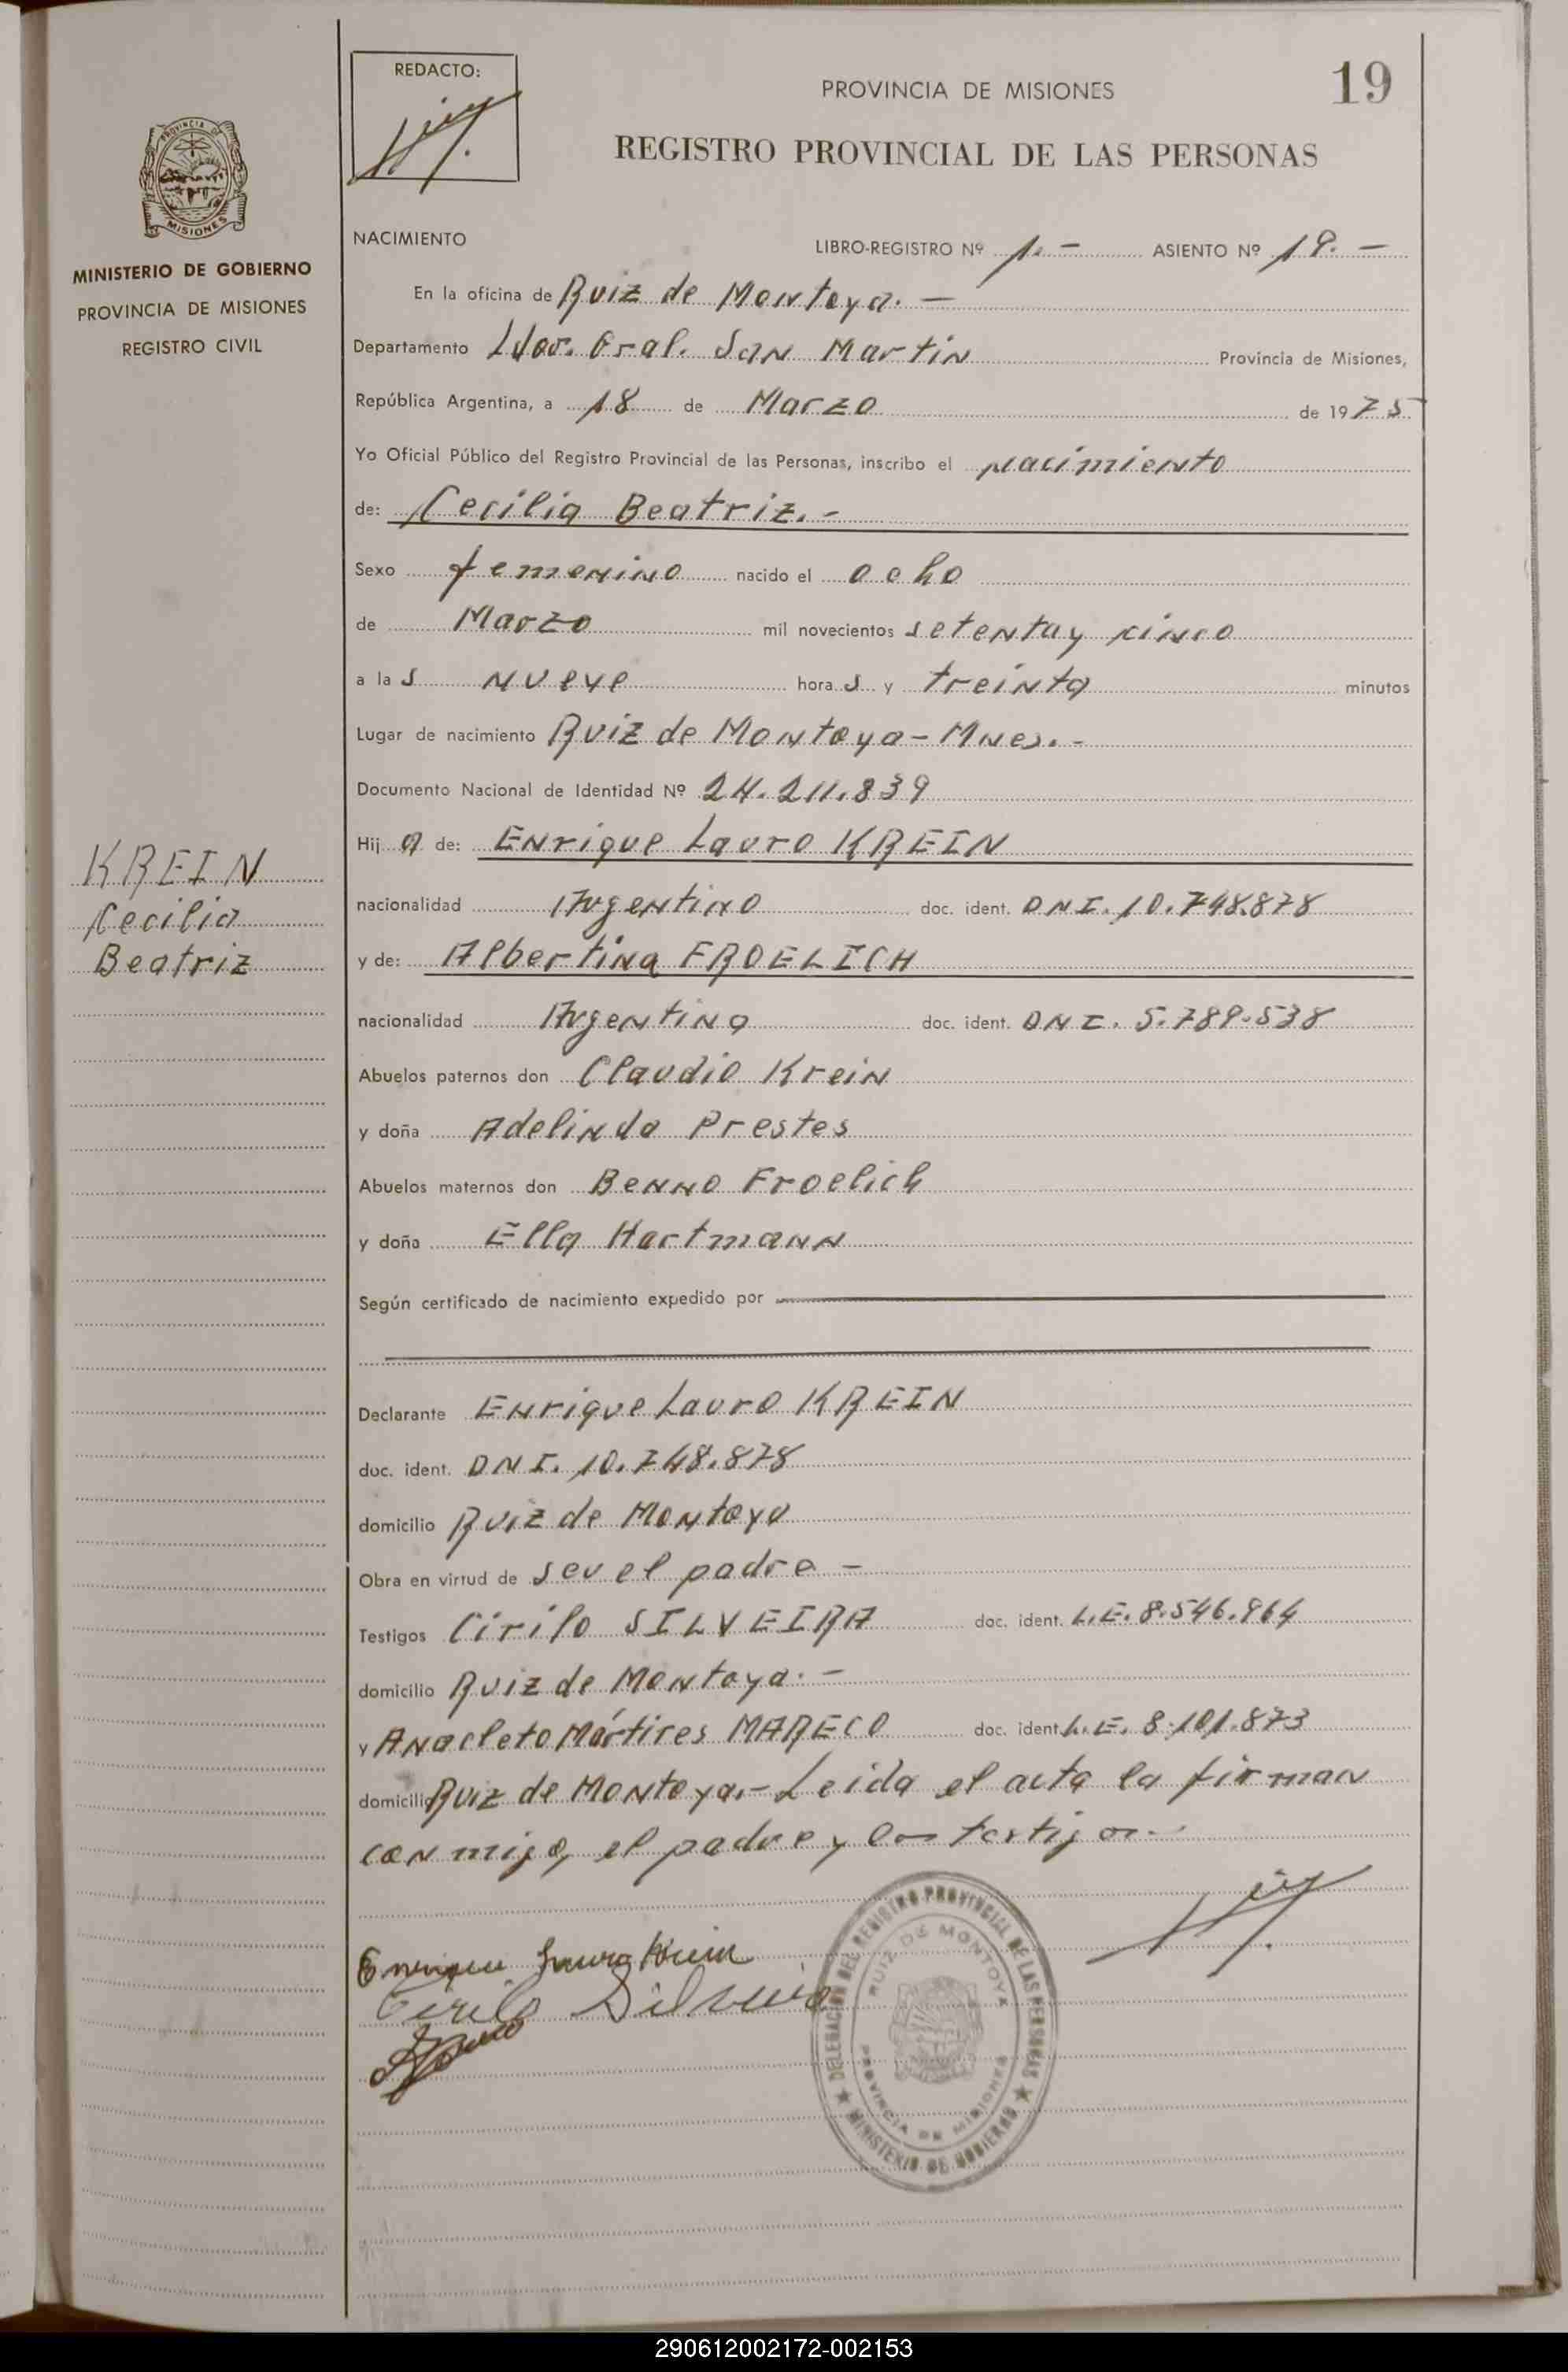 REDACTO:
PROVINCIA DE MISIONES
19
REGISTRO PROVINCIAL DE LAS PERSONAS
PROVINCIA DE
MISIONES
MINISTERIO DE GOBIERNO
PROVINCIA DE MISIONES
REGISTRO CIVIL
NACIMIENTO
LIBRO-REGISTRO Nº 1.- ASIENTO Nº 19.-
En la oficina de Ruiz de Montoya.-
Departamento Ldor. Gral. San Martin Provincia de Misiones,
República Argentina, a 18 de Marzo de 1975
Yo Oficial Público del Registro Provincial de las Personas, inscribo el nacimiento
de: Cecilia Beatriz.-
Sexo femenino nacido el ocho
de Marzo mil novecientos setenta y cinco
a la s nueve hora s y treinta minutos
Lugar de nacimiento Ruiz de Montoya - Mnes.-
Documento Nacional de Identidad Nº 24.211.839
Hij a de: Enrique Lauro KREIN
KREIN
Cecilia
Beatriz
nacionalidad Argentino doc. ident. DNI. 10.748.878
y de: Albertina FROELICH
nacionalidad Argentina doc. ident. DNI. 5.789.538
Abuelos paternos don Claudio Krein
y doña Adelinda Prestes
Abuelos maternos don Benno Froelich
y doña Ella Hartmann
Según certificado de nacimiento expedido por
Declarante Enrique Lauro KREIN
doc. ident. DNI. 10.748.878
domicilio Ruiz de Montoya
Obra en virtud de ser el padre -
Testigos Cirilo SILVEIRA doc. ident. L.E. 8.546.964
domicilio Ruiz de Montoya.-
y Anacleto Mártires MARECO doc. ident. L.E. 8.101.873
domicilio Ruiz de Montoya.- Leida el acta la firman
conmigo, el padre y los testigos.-
Enrique Lauro Krein
Cirilo Silveira
DELEGACION DEL REGISTRO PROVINCIAL DE LAS PERSONAS
RUIZ DE MONTOYA
PROVINCIA DE MISIONES
MINISTERIO DE GOBIERNO
290612002172-002153